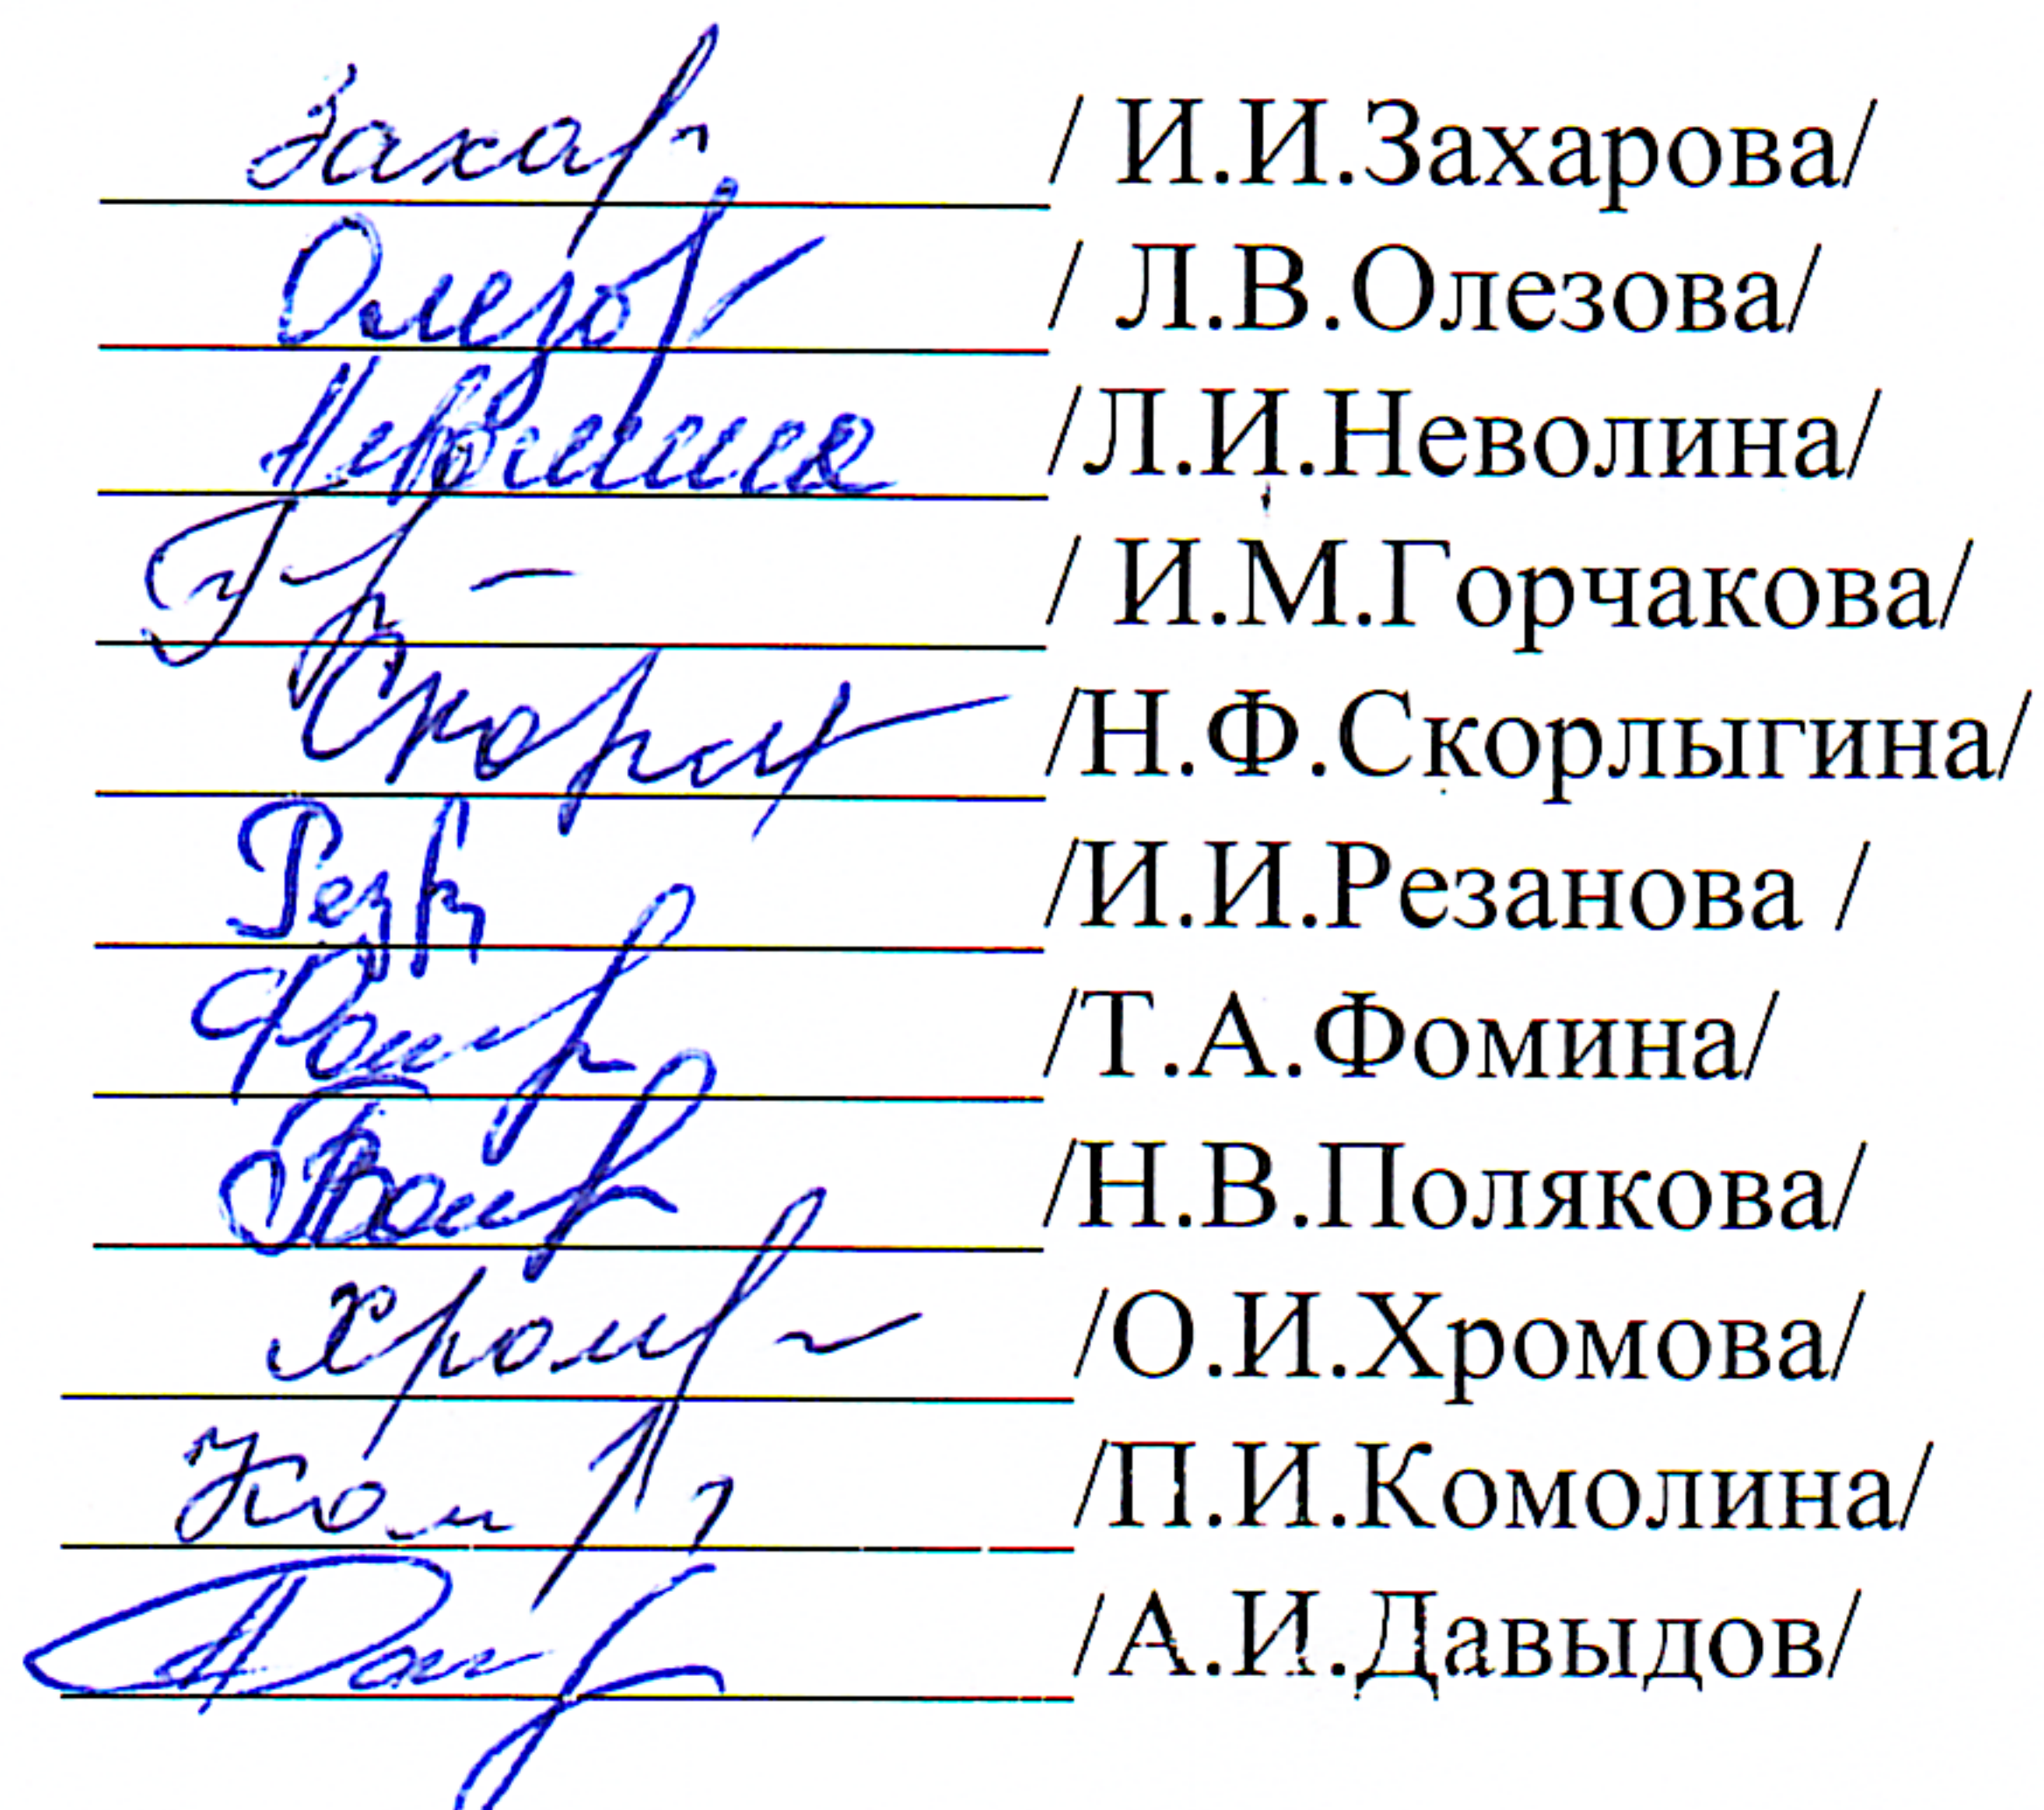 Захар / И.И.Захарова/
Олезов / Л.В.Олезова/
Неволина /Л.И.Неволина/
/ И.М.Горчакова/
Скорл /Н.Ф.Скорлыгина/
Рез /И.И.Резанова /
Фом /Т.А.Фомина/
/Н.В.Полякова/
Хромов /О.И.Хромова/
Ком /П.И.Комолина/
/А.И.Давыдов/